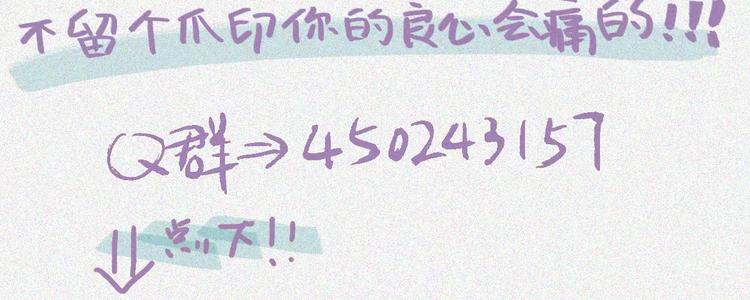 不留个爪印你的良心会痛的!!!
Q群⇒450243157
⇓点下!!